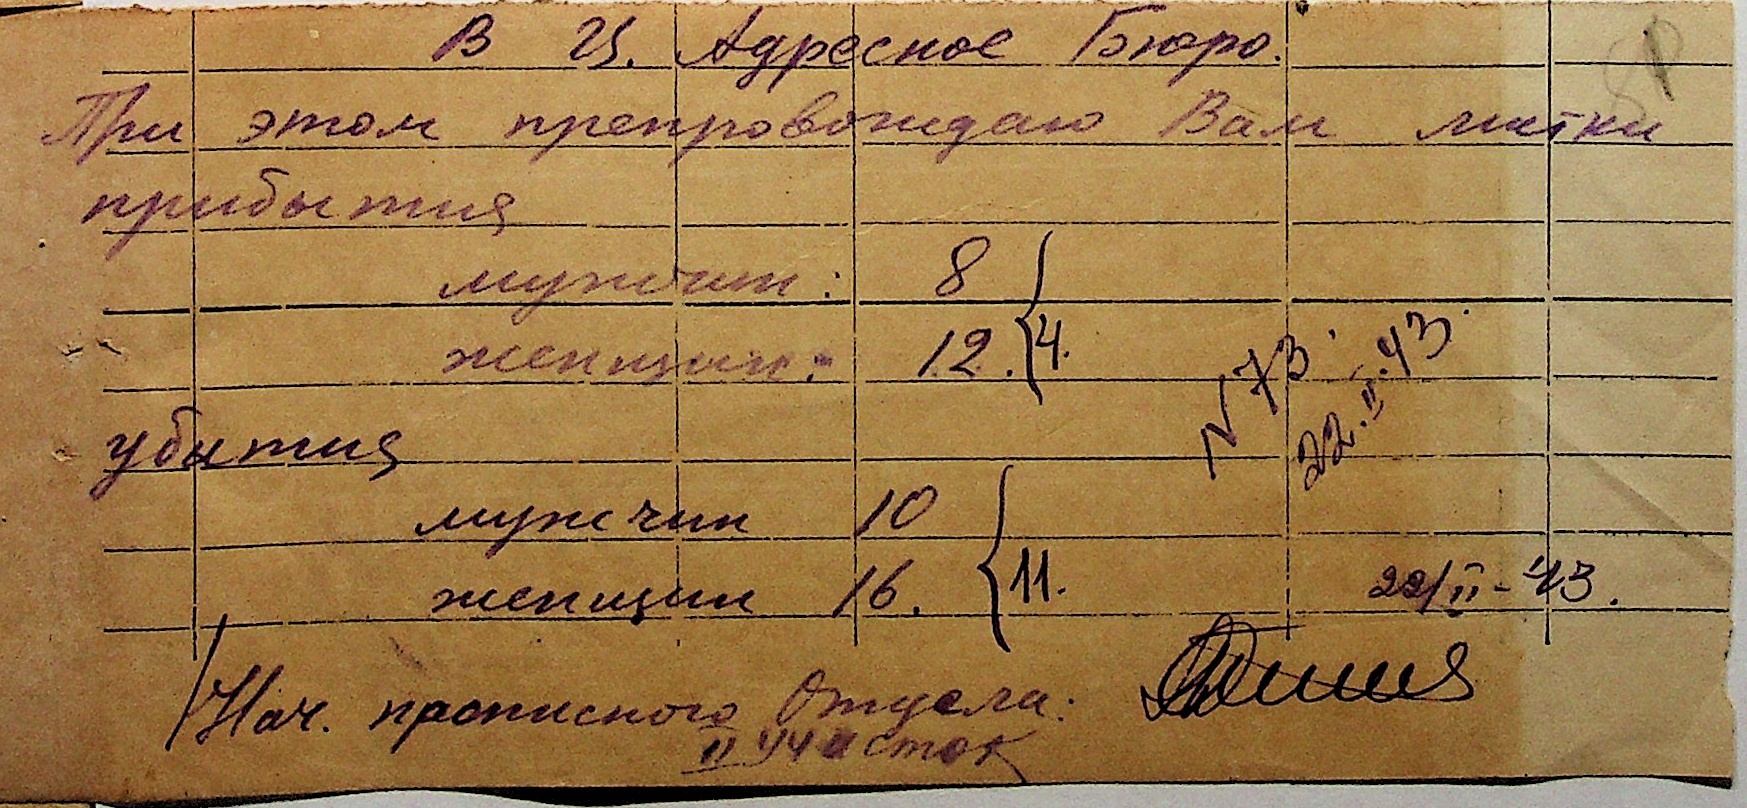 В Ц. Адресное Бюро.
При этом препровождаю Вам листки
прибытия
мужчин: 8
женщин: 12. 4.
N 73.
22.II.43.
убития
мужчин 10
женщин 16. 11.
22/II-43.
Нач. прописного Отдела:
II участок